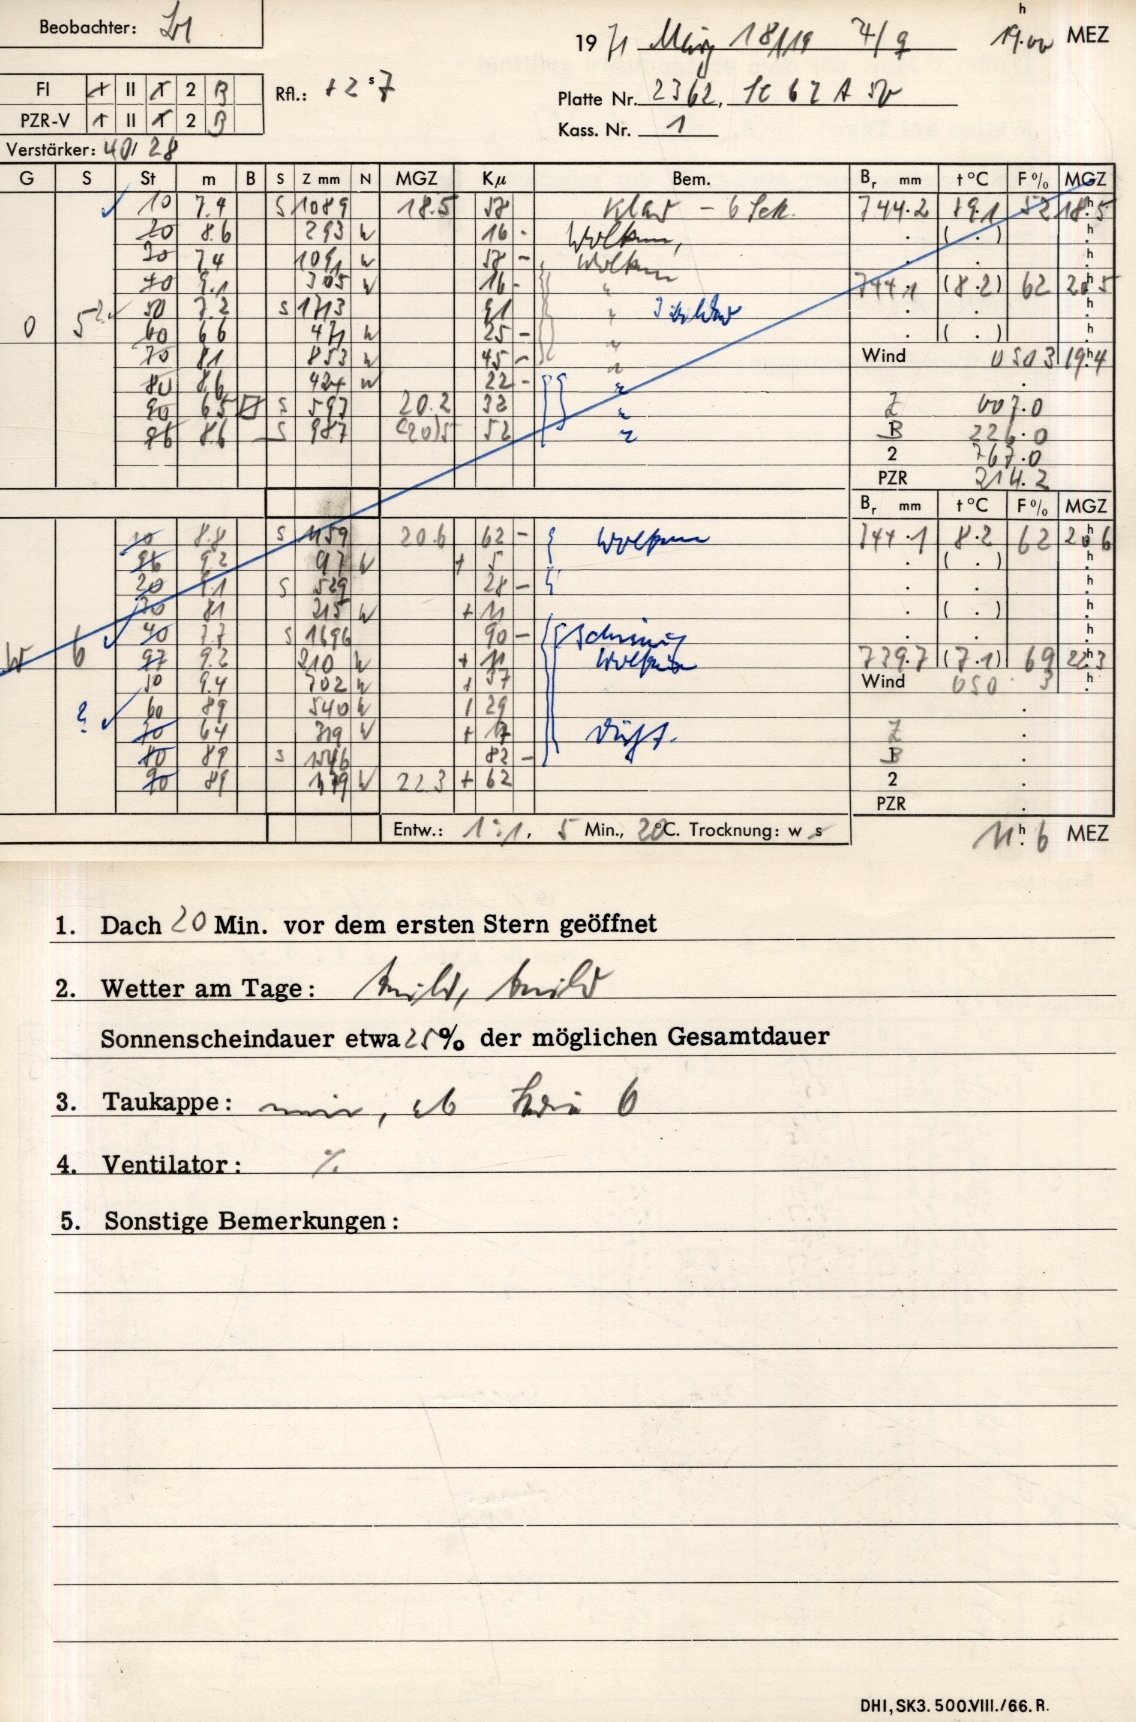 Beobachter:
19 71 März 18/19 19 h 00 MEZ
FI + II 1 2 B Rfl.: +2 s 7
Platte Nr. 2362,
PZR-V 1 II 1 2 B
Kass. Nr. 1
Verstärker: 40/28
G S St m B S Z mm N MGZ Kμ Bem. Br mm t °C F % MGZ
10 7.4 S 1089 18.5 58 klar - 6 Sek. 744.2 19.1 52 18 h 5
20 8.6 293 W 16 - Wolken, . ( . ) h
30 7.4 1091 W 58 - Wolken . . h
40 9.1 305 W 16 - " 744.1 (8.2) 62 20 h 5
0 5 50 7.2 S 1713 91 " . . h
60 6.6 471 W 25 - " . ( . ) h
70 8.1 853 W 45 - " Wind 0503 19 h 4
80 8.6 424 W 22 - "
90 6.5 S 597 20.2 32 " Z 007.0
86 8.6 S 987 (20)5 52 " B 226.0
2 767.0
PZR 214.2
Br mm t °C F % MGZ
10 8.8 S 1159 20.6 62 - Wolken 744.1 8.2 62 20 h 6
96 9.2 97 W + 5 . ( . ) h
20 9.1 S 529 28 - . . h
30 8.1 215 W + 11 . ( . ) h
W 6 40 7.7 S 1696 90 - . . h
97 9.2 210 W + 11 Wolken 739.7 (7.1) 69 22 h 3
50 9.4 702 W + 37 Wind 050 3 h
? 60 8.9 540 W + 29 .
70 6.4 319 W + 17 Z .
80 8.9 S 1546 82 - B .
90 8.9 1179 W 22.3 + 62 2 .
PZR .
Entw.: 1:1, 5 Min., 20 °C. Trocknung: w s 11 h 6 MEZ
1. Dach 20 Min. vor dem ersten Stern geöffnet
2. Wetter am Tage:
Sonnenscheindauer etwa 25 % der möglichen Gesamtdauer
3. Taukappe: nein, ab 6
4. Ventilator: ·/.
5. Sonstige Bemerkungen:
DHI, SK3. 500.VIII./66. R.